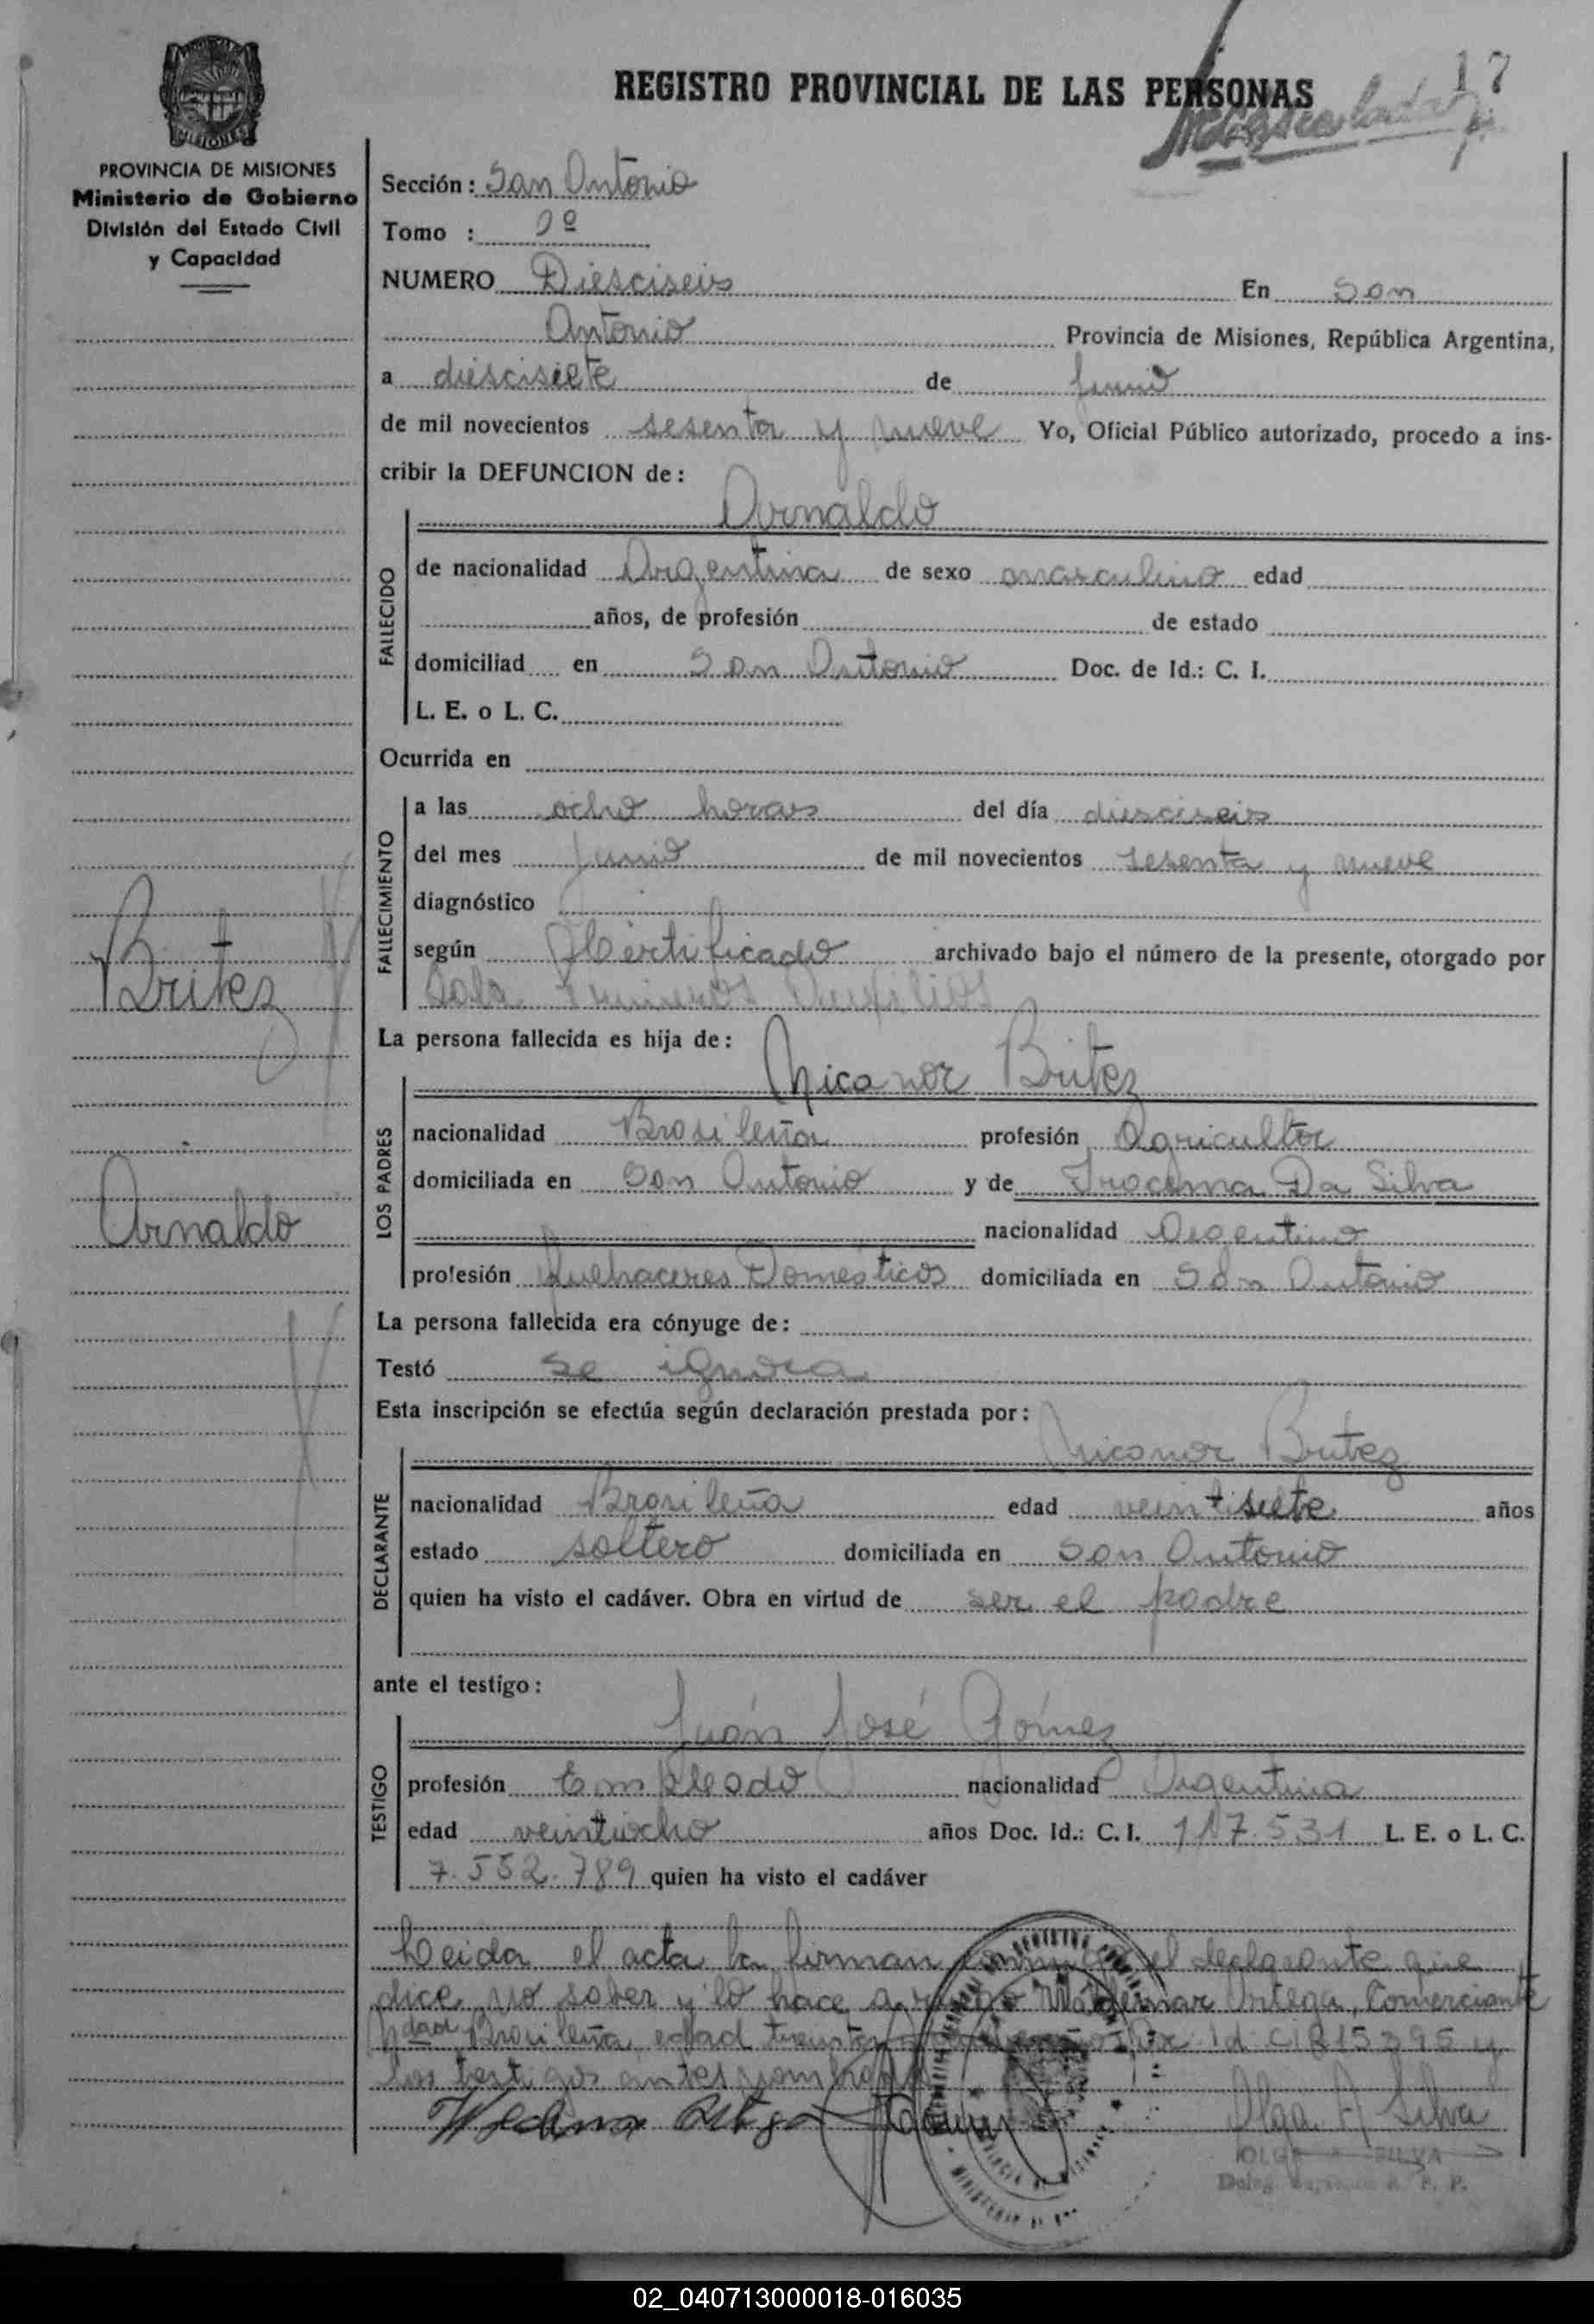 REGISTRO PROVINCIAL DE LAS PERSONAS
17
MISIONES
PROVINCIA DE MISIONES
Ministerio de Gobierno
División del Estado Civil
y Capacidad
Sección: San Antonio
Tomo :
NUMERO Diesciseis En San
Antonio Provincia de Misiones, República Argentina,
a diescisiete de Junio
de mil novecientos sesenta y nueve Yo, Oficial Público autorizado, procedo a ins-
cribir la DEFUNCION de:
Arnaldo
FALLECIDO
de nacionalidad Argentina de sexo masculino edad
años, de profesión de estado
domiciliad en San Antonio Doc. de Id.: C. I.
L. E. o L. C.
Ocurrida en
FALLECIMIENTO
a las ocho horas del día diesciseis
del mes Junio de mil novecientos sesenta y nueve
diagnóstico
según Certificado archivado bajo el número de la presente, otorgado por
Sala Primeros Auxilios
Britez
Arnaldo
La persona fallecida es hija de:
Nicanor Britez
LOS PADRES
nacionalidad Brasileña profesión Agricultor
domiciliada en San Antonio y de Irocema Da Silva
nacionalidad Argentina
profesión Quehaceres Domesticos domiciliada en San Antonio
La persona fallecida era cónyuge de:
Testó se ignora
Esta inscripción se efectúa según declaración prestada por:
Nicanor Britez
DECLARANTE
nacionalidad Brasileña edad veintisiete años
estado soltero domiciliada en San Antonio
quien ha visto el cadáver. Obra en virtud de ser el padre
ante el testigo:
Juan José Gómez
TESTIGO
profesión Empleado nacionalidad Argentina
edad veintiocho años Doc. Id.: C. I. 117.531 L. E. o L. C.
7.552.789 quien ha visto el cadáver
Leida el acta la firman el declarante que
dice no saber y lo hace a ruego Waldemar Ortega, Comerciante
Ndad Brasileña, edad treinta Id. C.I 815395 y
los testigos antes nombrados
Olga A Silva
OLGA A SILVA
02_040713000018-016035